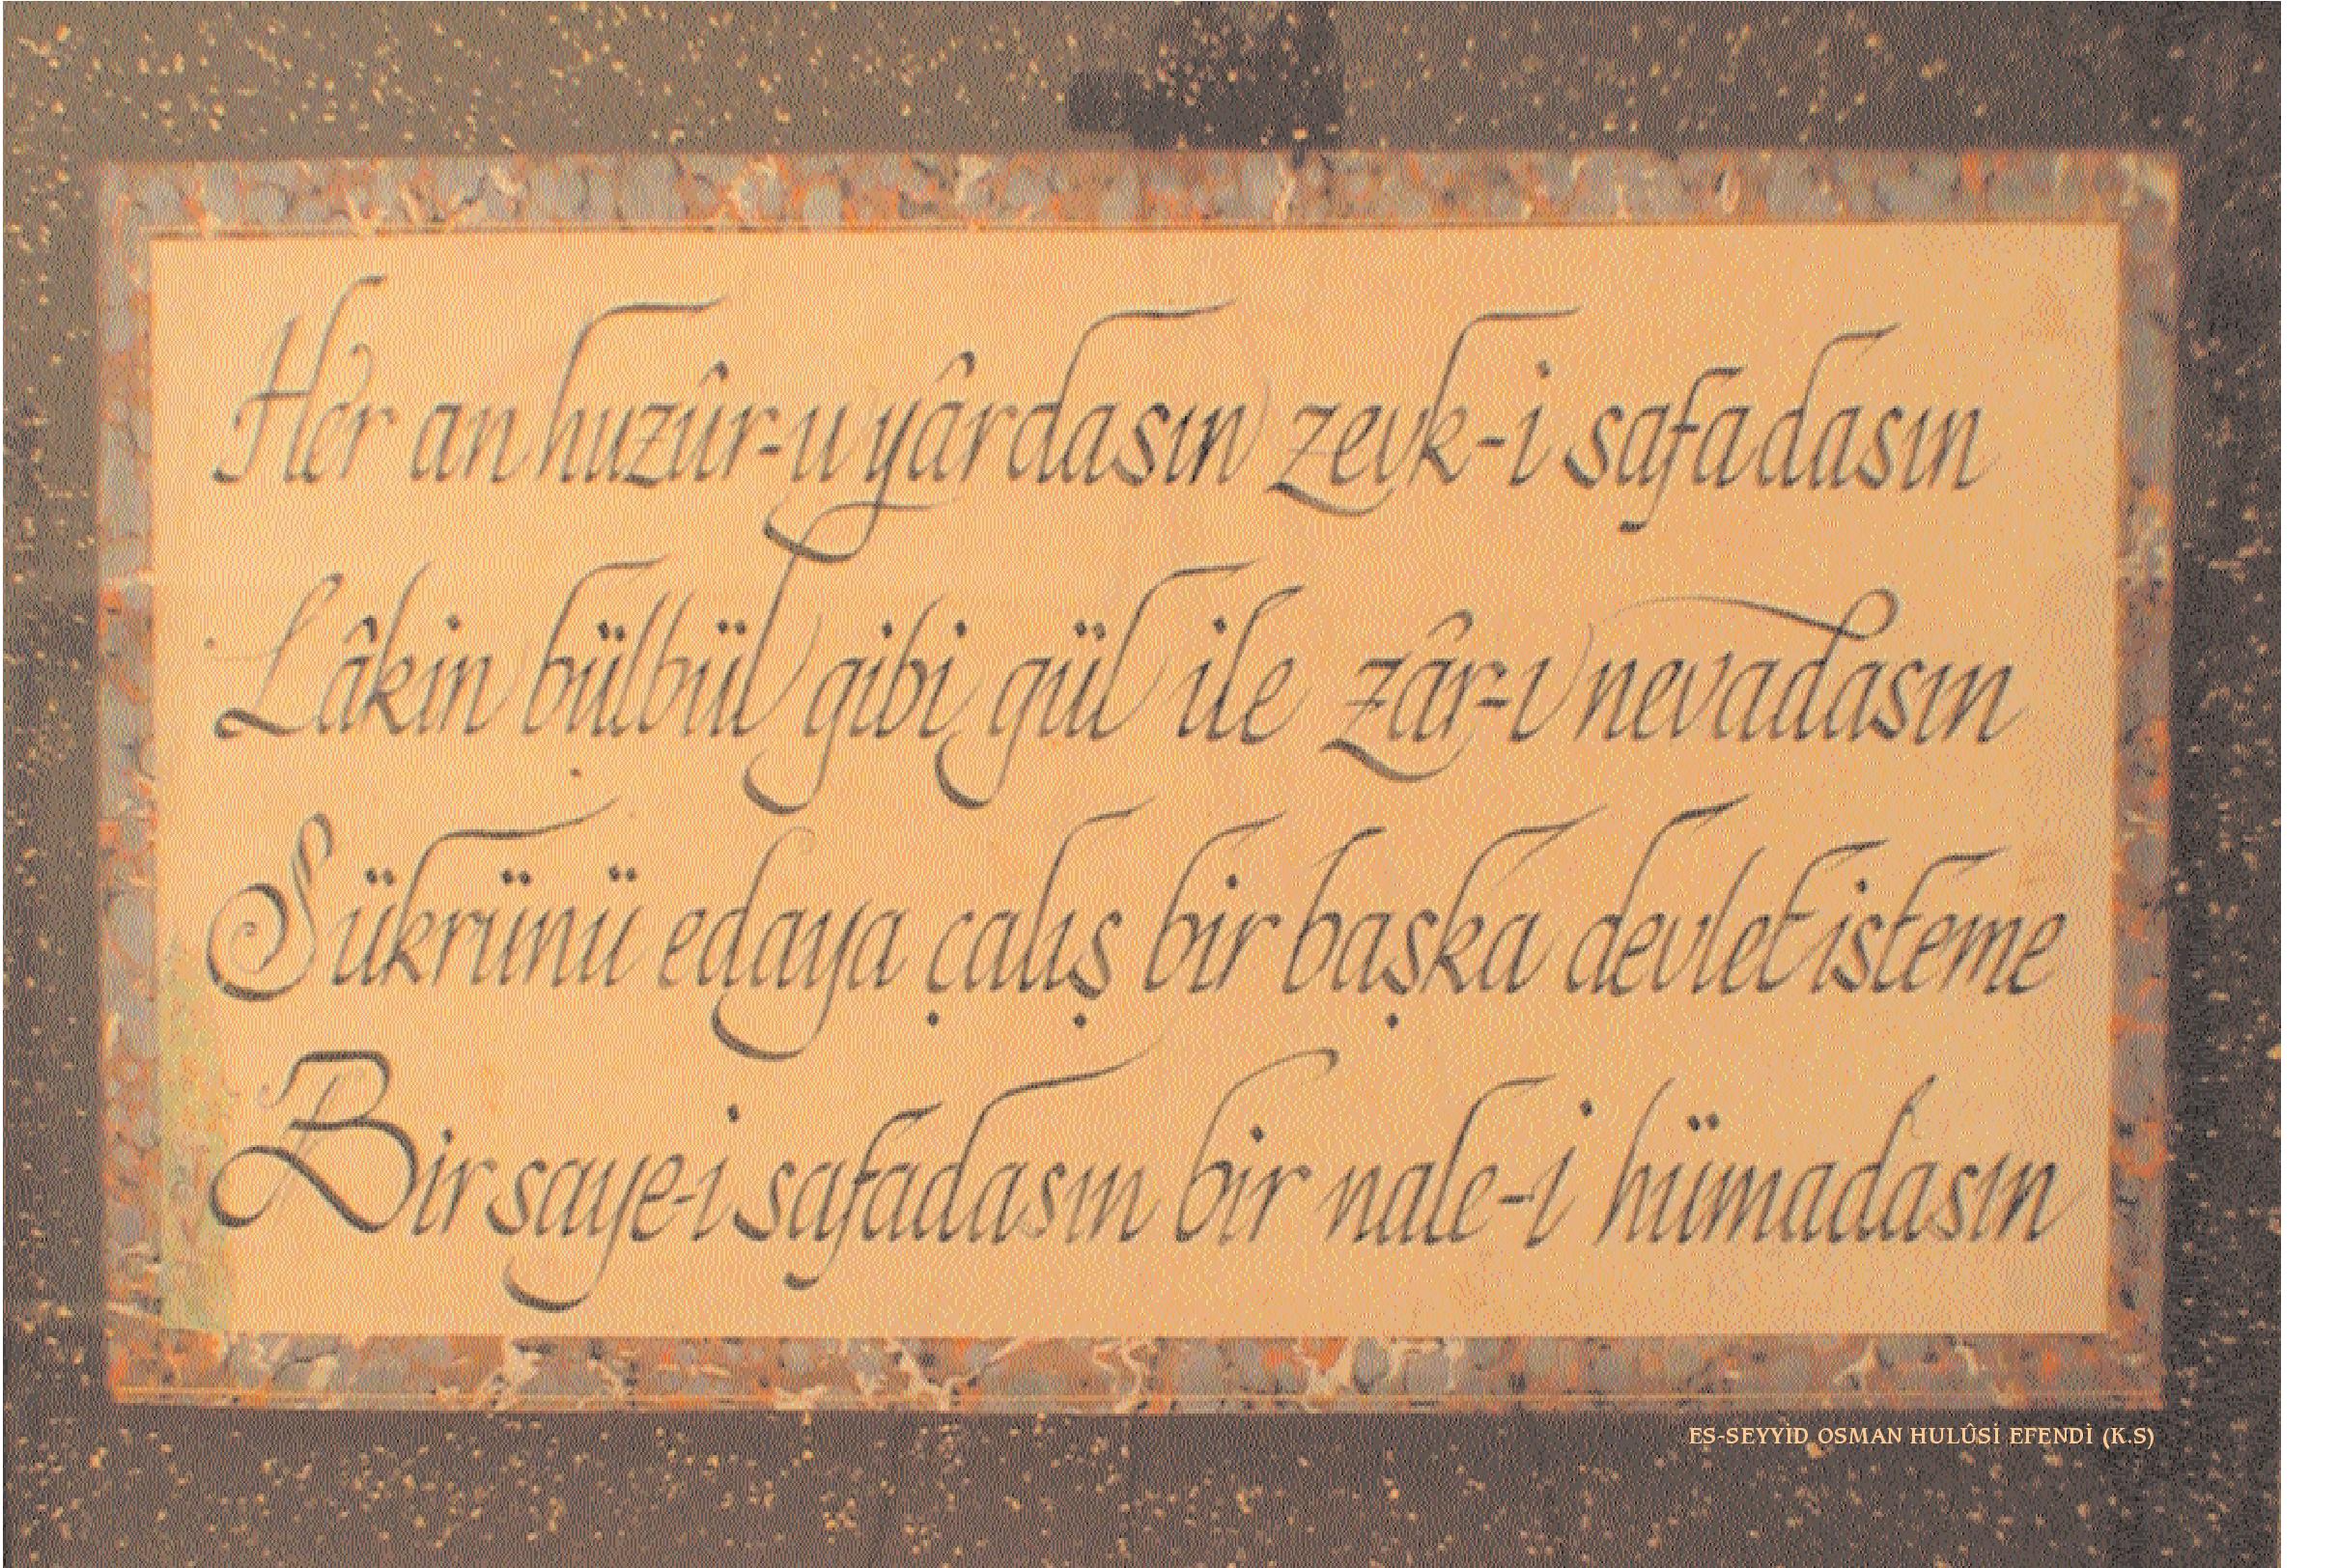 Her an huzûr-u yârdasın zevk-i safadasın
Lâkin bülbül gibi gül ile zâr-ı nevadasın
Şükrünü edaya çalış bir başka devlet isteme
Bir saye-i safadasın bir nale-i hümadasın
ES-SEYYİD OSMAN HULÛSİ EFENDİ (K.S)